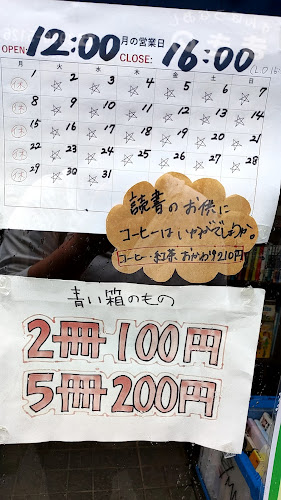 月の営業日
OPEN: 12:00 CLOSE: 16:00
月 火 水 木 金 土 日
休 1 ☆ 2 ☆ 3 ☆ 4 ☆ 5 ☆ 6 ☆ 7
休 8 ☆ 9 ☆ 10 ☆ 11 ☆ 12 ☆ 13 ☆ 14
休 15 ☆ 16 ☆ 17 ☆ 18 ☆ 19 ☆ 20 ☆ 21
休 22 ☆ 23 ☆ 24 ☆ 25 ☆ 26 ☆ 27 ☆ 28
休 29 ☆ 30 ☆ 31
読書のお供に
コーヒーはいかがでしょうか。
コーヒー・紅茶 おかわり210円
青い箱のもの
2冊100円
5冊200円